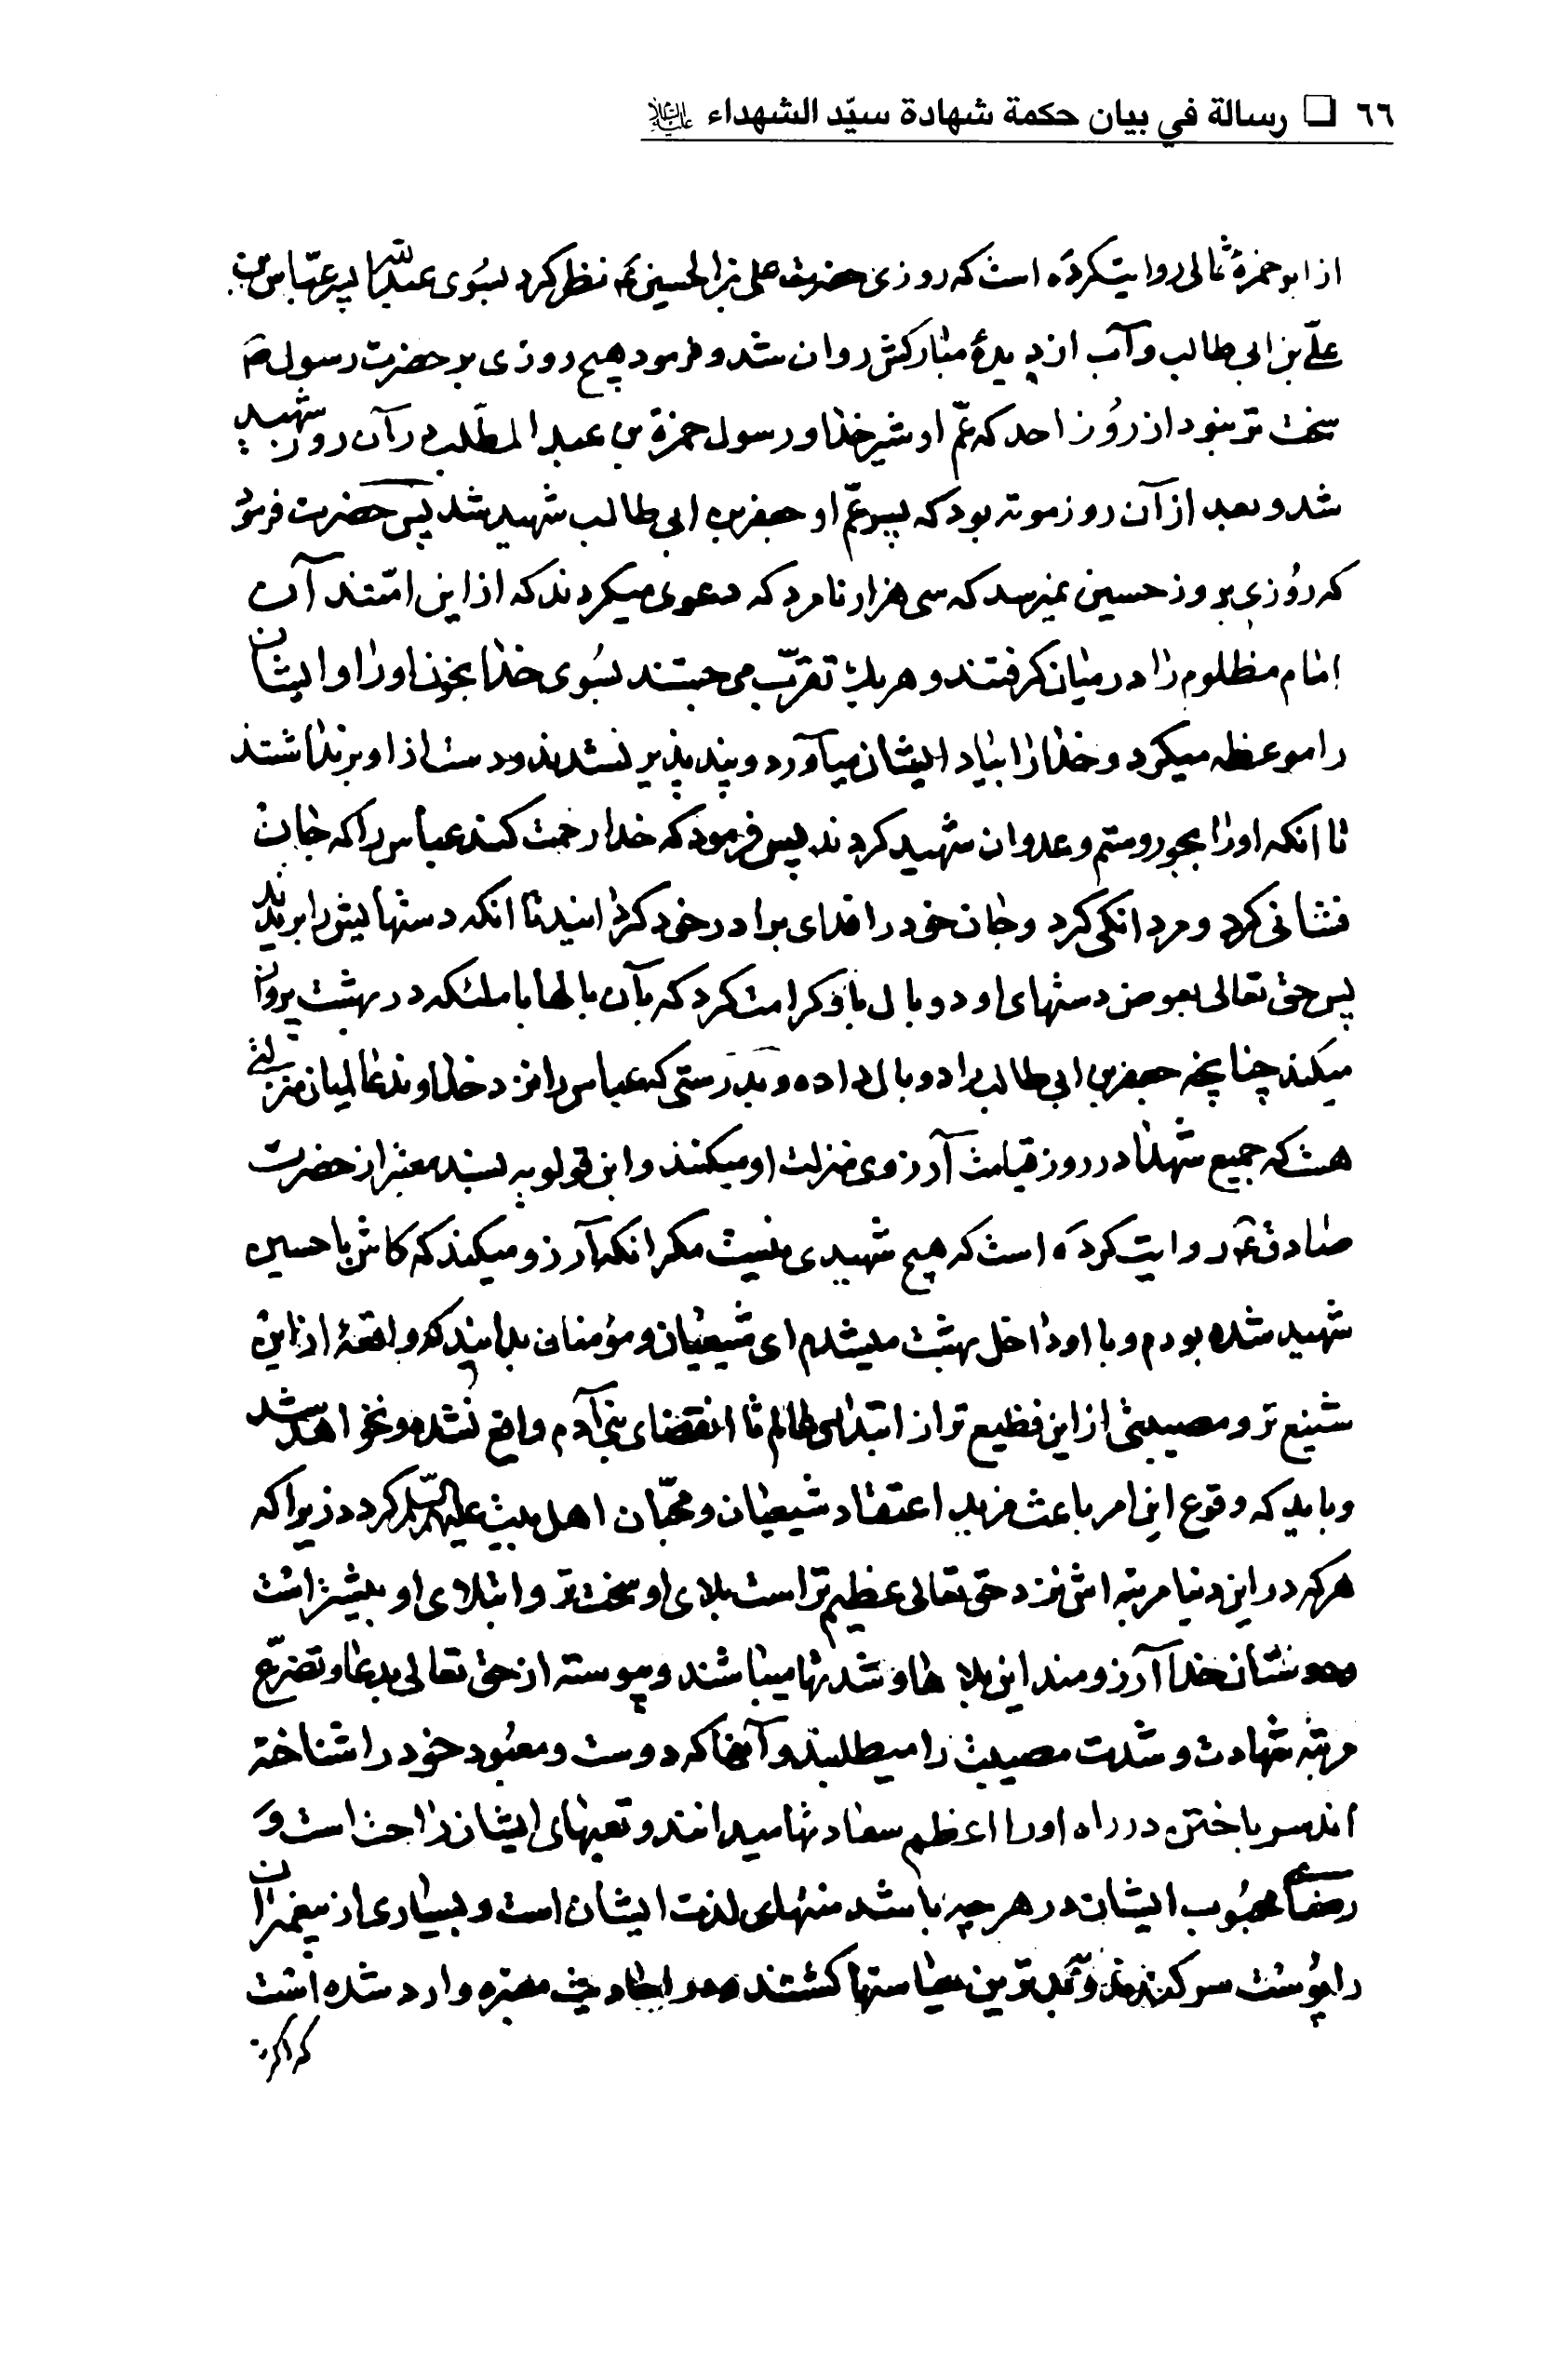 ٦٦ □ رسالة في بيان حكمة شهادة سيّد الشهداء عليه السلام
از ابو حمزهٔ ثمالی روایتکرده است که روزی حضرت علی بن الحسین ع نظر کرد بسوی عبدالله پسر عبّاس بن
علّی بن ابی طالب و آب از دیدهٔ مبارکش روان شد و فرمود هیچ روزی بر حضرت رسول ص
سخت تر نبود از روز احد که عمّ او شیر خدا و رسول حمزة بن عبد المطلب در آن روز شهید
شد و بعد از آن روز موته بود که پسر عمّ او جعفر بن ابی طالب شهید شد پس حضرت فرمود
که روزی بروز حسین نمیرسد که سی هزار نامرد که دعوی میکردند که از این امّتند آن
امام مظلوم را در میان گرفتند و هر یک تقرّب می جستند بسوی خدا بخون او و او ایشان
را موعظه میکرد و خدا را بیاد ایشان میآورد و پند پذیر نشدند و دست از او برنداشتند
تا انکه او را بجور و ستم و عدوان شهید کردند پس فرمود که خدا رحمت کند عباس را که جان
فشانی کرد و مردانگی کرد و جان خود را فدای برادر خود گردانید تا انکه دستهایش را بریدند
پس حق تعالی بعوض دستهای او دو بال باو کرامت کرد که بآن بالها با ملئکه در بهشت پرواز
میکند چنانچه جعفر بن ابی طالب را دو بال داده و بدرستی که عباس را نزد خداوند عالمیان منزلتی
هست که جمیع شهدا در روز قیامت آرزوی منزلت او میکنند و ابن قولویه بسند معتبر از حضرت
صادق ع روایت کرده است که هیچ شهیدی نیست مگر انکه آرزو میکند که کاش با حسین
شهید شده بودم و با او داخل بهشت میشدم ای شیعیان و مؤمنان بدانید که واقعهٔ از این
شنیع تر و مصیبتی از این فظیع تر از ابتدای عالم تا انقضای بنی آدم واقع نشده و نخواهد شد
و باید که وقوع این امر باعث مزید اعتقاد شیعیان و محبّان اهل بیت علیهم السّلم گردد زیرا که
هر که در این دنیا مرتبه اش نزد حق تعالی عظیم تر است بلای او سخت تر و ابتلای او بیشتر است
و دوستان خدا آرزومند این بلاها و شدتها میباشند و پیوسته از حق تعالی بدعا و تضرّع
مرتبه شهادت و شدت مصیبت را میطلبند و آنها که دوست و معبود خود را شناخته
اند سر باختن در راه او را اعظم سعادتها میدانند و تعبهای ایشان راحت است و
رضای محبوب ایشان در هر چه باشد منتهای لذت ایشان است و بسیاری از پیغمبران
را پوست سر کندند و بدترین سیاستها کشتند و در احادیث معتبره وارد شده است
که اگر